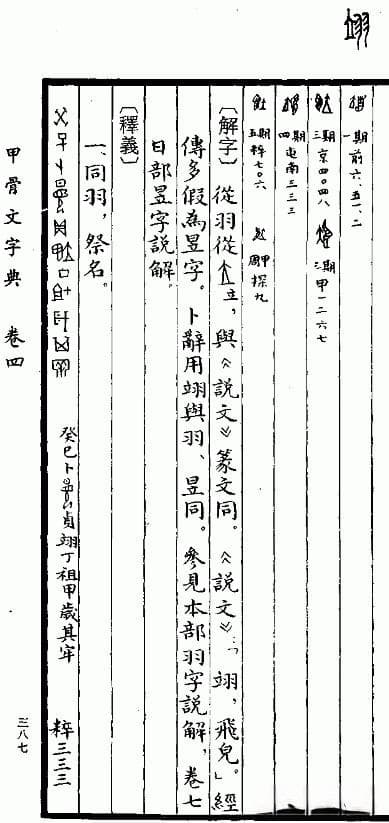 翊
一期 前六.五一.二
三期 京四〇四八 三期 甲一二六七
四期 屯南三三三
五期 粹七〇六 周甲探九
〔解字〕從羽從立,與《說文》篆文同。《說文》:「翊,飛皃。」經
傳多假為昱字。卜辭用翊與羽、昱同。參見本部羽字說解,卷七
日部昱字說解。
〔釋義〕
一、同羽,祭名。
癸巳卜貞翊丁祖甲歲其牢 粹三三三
甲骨文字典 卷四
三八七